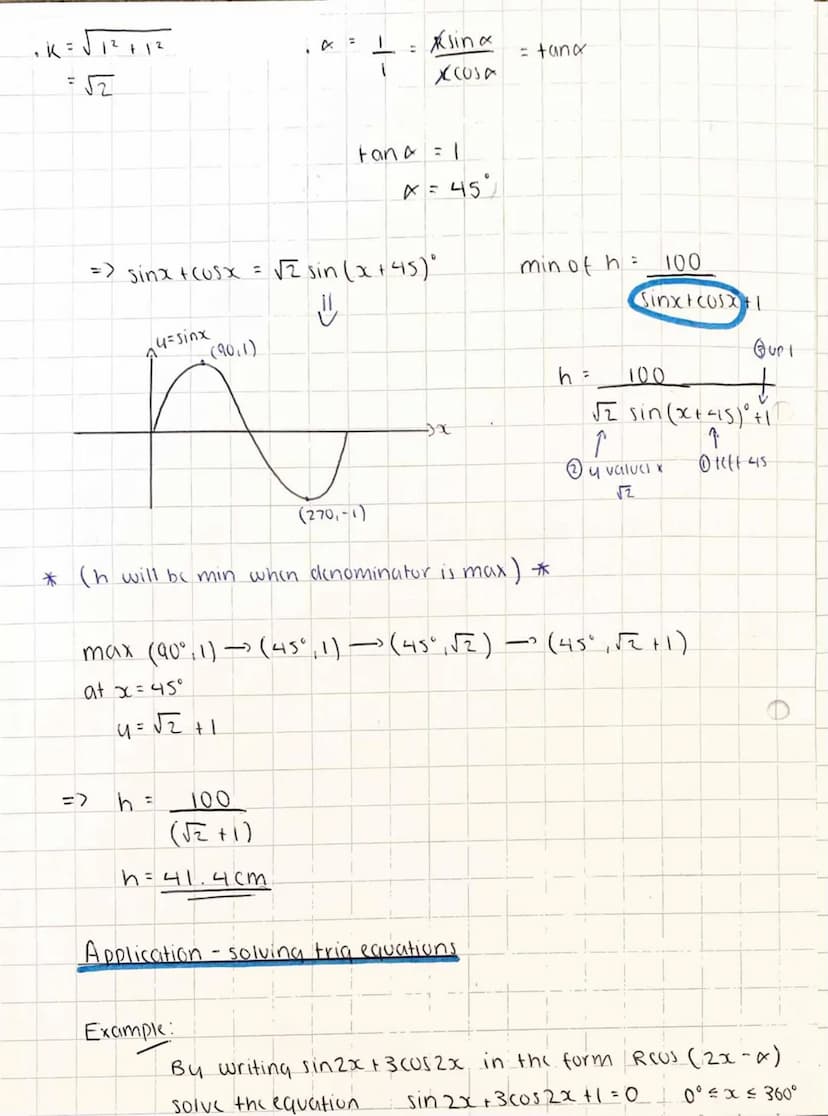 . K = √1² + 1²
= √2
. α = 1/1 = Ksinα/Kcosα = tanα
tanα = 1
α = 45°
=> sinx + cosx = √2 sin(x+45)°
min of h = 100/sinx+cosx+1
y=sinx
(90,1)
x
(270,-1)
③ up 1
h = 100/√2 sin(x+45)°+1
② y values x √2
① left 45
* (h will be min when denominator is max) *
max (90°,1) → (45°,1) → (45°,√2) → (45°,√2+1)
at x = 45°
y = √2 + 1
=> h = 100/(√2 + 1)
h = 41.4cm
Application - solving trig equations
Example:
By writing sin2x + 3cos2x in the form Rcos(2x-α)
solve the equation sin2x + 3cos2x + 1 = 0 0° ≤ x ≤ 360°